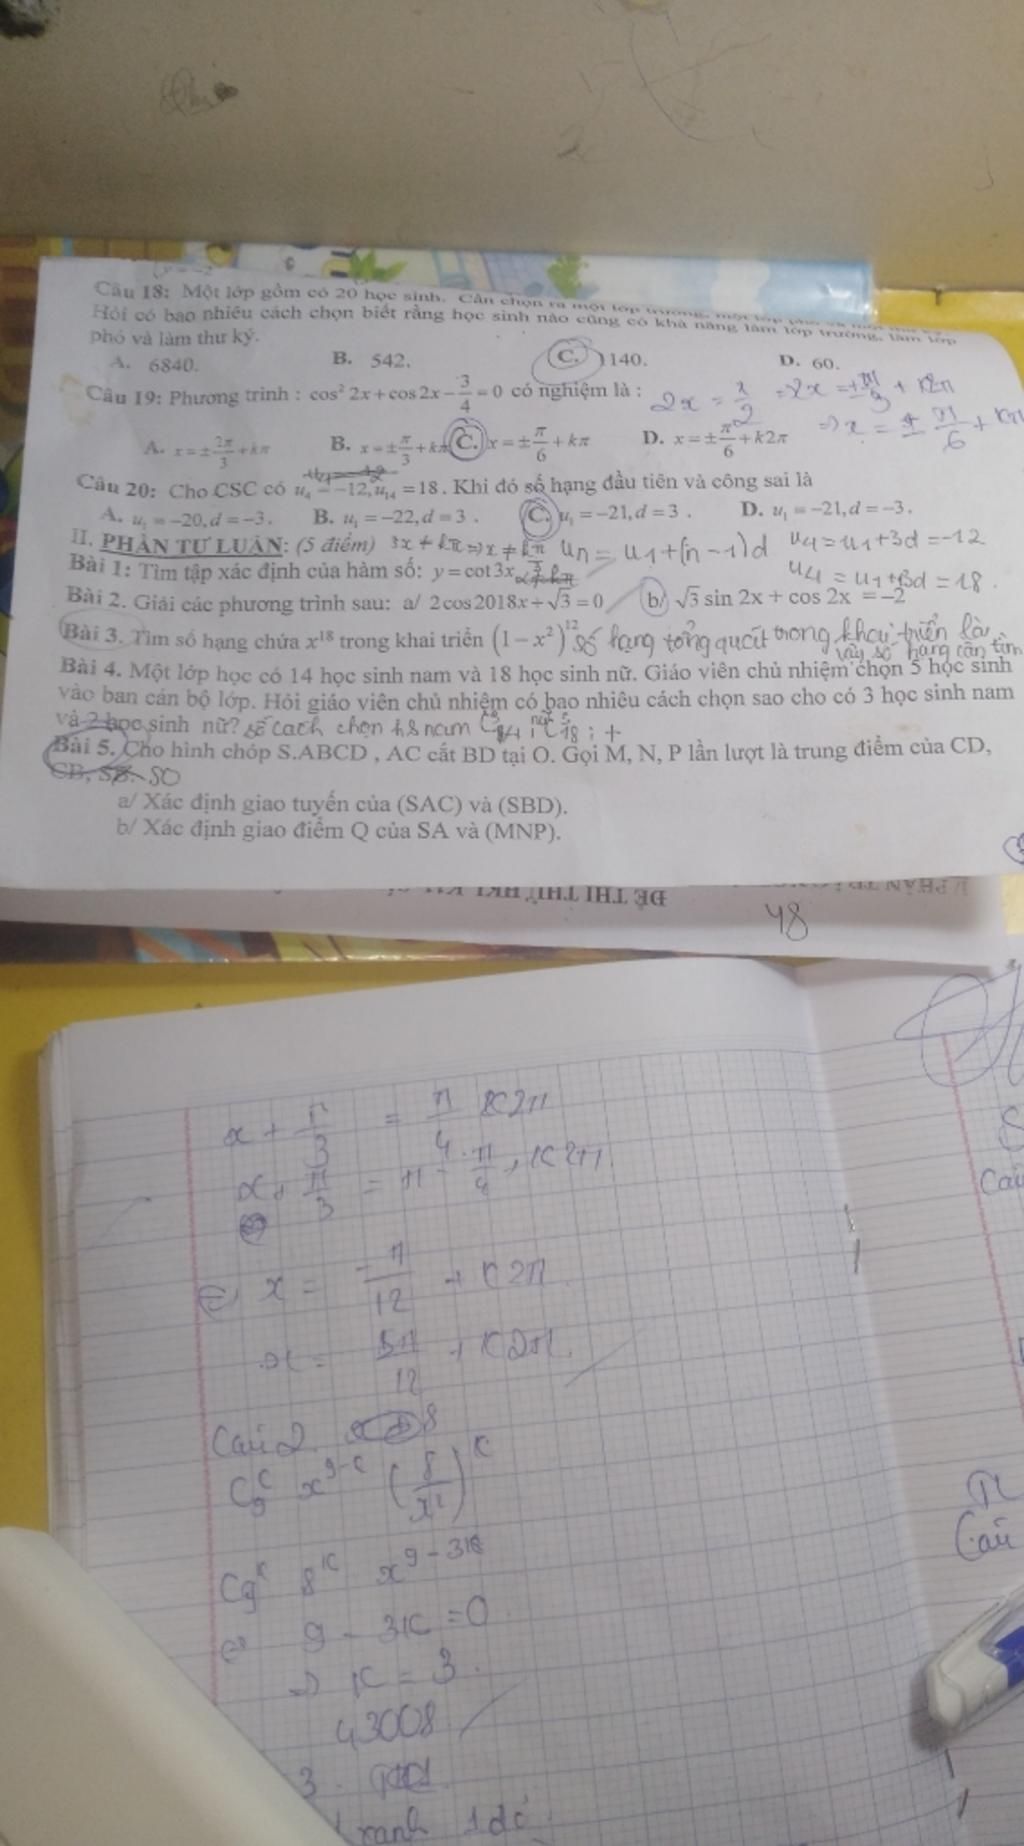 Câu 18: Một lớp gồm có 20 học sinh. Cần chọn ra một lớp trưởng, một lớp phó và một thư ký.
Hỏi có bao nhiêu cách chọn biết rằng học sinh nào cũng có khả năng làm lớp trưởng, làm lớp
phó và làm thư ký.
A. 6840. B. 542. C. 1140. D. 60.
Câu 19: Phương trình : cos² 2x + cos 2x − 3/4 = 0 có nghiệm là :
2x = 1/2 ⇒ 2x = ± π/3 + k2π
⇒ x = ± π/6 + kπ
A. x = ± 2π/3 + kπ B. x = ± π/3 + kπ C. x = ± π/6 + kπ D. x = ± π/6 + k2π
Câu 20: Cho CSC có u₄ = −12, u₁₄ = 18. Khi đó số hạng đầu tiên và công sai là
A. u₁ = −20, d = −3. B. u₁ = −22, d = 3. C. u₁ = −21, d = 3. D. u₁ = −21, d = −3.
II. PHẦN TỰ LUẬN: (5 điểm) 3x ≠ kπ ⇒ x ≠ kπ/3 un = u1 + (n − 1)d u4 = u1 + 3d = −12
Bài 1: Tìm tập xác định của hàm số: y = cot 3x
Bài 2. Giải các phương trình sau: a/ 2cos2018x + √3 = 0 b/ √3 sin 2x + cos 2x = −2
Bài 3. Tìm số hạng chứa x¹⁸ trong khai triển (1 − x²)¹² số hạng tổng quát trong khai triển là
vậy số hạng cần tìm
Bài 4. Một lớp học có 14 học sinh nam và 18 học sinh nữ. Giáo viên chủ nhiệm chọn 5 học sinh
vào ban cán bộ lớp. Hỏi giáo viên chủ nhiệm có bao nhiêu cách chọn sao cho có 3 học sinh nam
và 2 học sinh nữ? số cách chọn hs nam
Bài 5. Cho hình chóp S.ABCD , AC cắt BD tại O. Gọi M, N, P lần lượt là trung điểm của CD,
CB, SB. SO
a/ Xác định giao tuyến của (SAC) và (SBD).
b/ Xác định giao điểm Q của SA và (MNP).
ĐỀ THI THỬ HK1
48
x + π/3 = π/4 k2π
x + π/3 = π − π/4 + k2π
⇔ x = −π/12 + k2π
x = 5π/12 + k2π
Câu 2 8
C9^k x^9−k (8/x²)^k
C9^k 8^k x^9−3k
⇔ 9 − 3k = 0
⇒ k = 3
43008
3.
xanh 1 đỏ
Câu
Câu